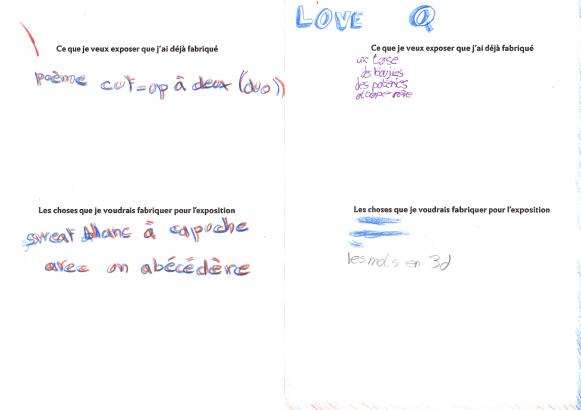 Ce que je veux exposer que j'ai déjà fabriqué
poème cut=op à deux (duo)
Les choses que je voudrais fabriquer pour l'exposition
sweat blanc à capoche
avec un abécédère
LOVE
Ce que je veux exposer que j'ai déjà fabriqué
un tase
des poteries
Les choses que je voudrais fabriquer pour l'exposition
les mots en 3d